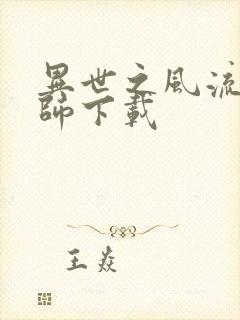 異世之風流
師下載
王焱